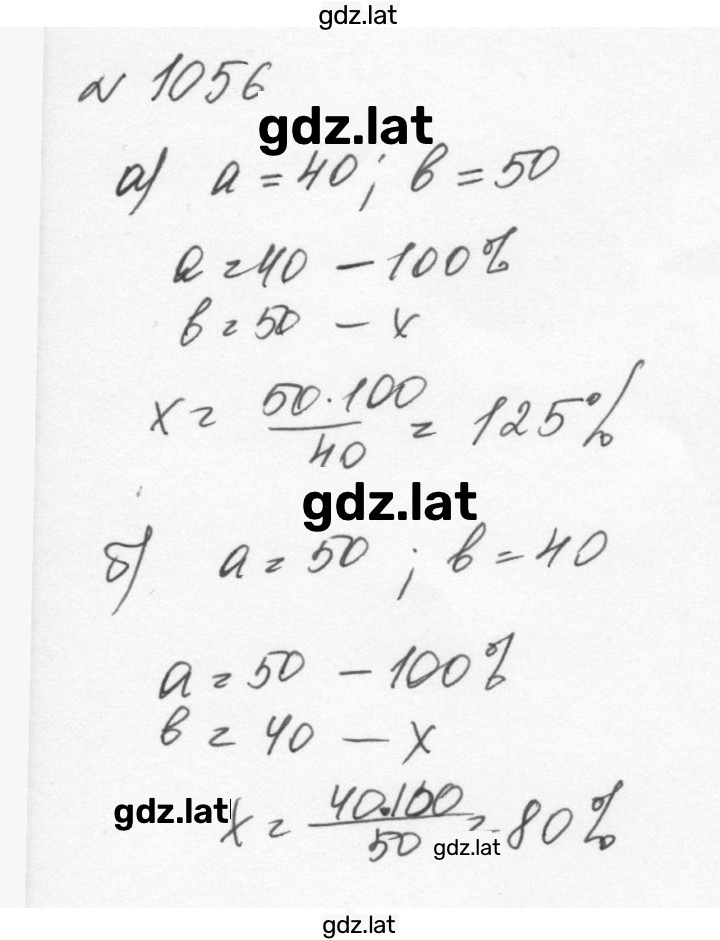 gdz.lat
№ 1056
gdz.lat
а) a = 40; b = 50
a = 40 – 100%
b = 50 – x
x = 50·100/40 = 125%
gdz.lat
б) a = 50; b = 40
a = 50 – 100%
b = 40 – x
gdz.lat
x = 40·100/50 = 80%
gdz.lat
gdz.lat